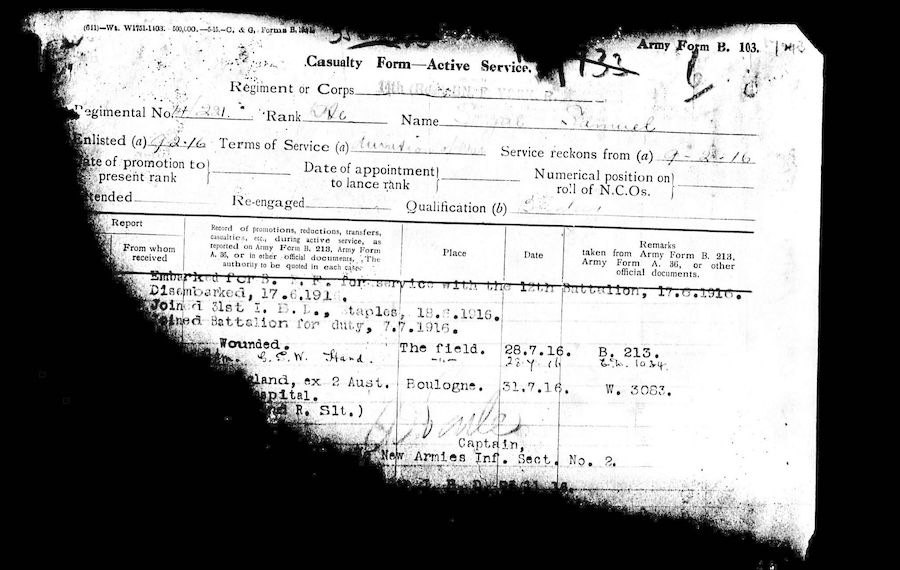 (611)—Wt. W1751-1103. 500,000.—5-15.—C. & G. Forms B.
Army Form B. 103.
Casualty Form—Active Service.
1733 6
Regiment or Corps
Regimental No. Rank Name Samuel
Enlisted (a) 9.2.16 Terms of Service (a) Service reckons from (a) 9-2-16
ate of promotion to present rank
Date of appointment to lance rank
Numerical position on roll of N.C.Os.
tended Re-engaged Qualification (b)
Report
From whom received
Record of promotions, reductions, transfers, casualties, etc., during active service, as reported on Army Form B. 213, Army Form A. 36, or in other official documents. The authority to be quoted in each case
Place
Date
Remarks
taken from Army Form B. 213, Army Form A. 36, or other official documents.
Embarked for B. E. F. for service with the 12th Battalion, 17.6.1916.
Disembarked, 17.6.191
Joined 31st I. B. D., staples, 18.6.1916.
oined Battalion for duty, 7.7.1916.
Wounded. The field. 28.7.16. B. 213.
G.S.W. Hand. -"- 28.7.16
gland, ex 2 Aust. Boulogne. 31.7.16. W. 3083.
spital.
nd R. Slt.)
Captain,
New Armies Inf. Sect. No. 2.